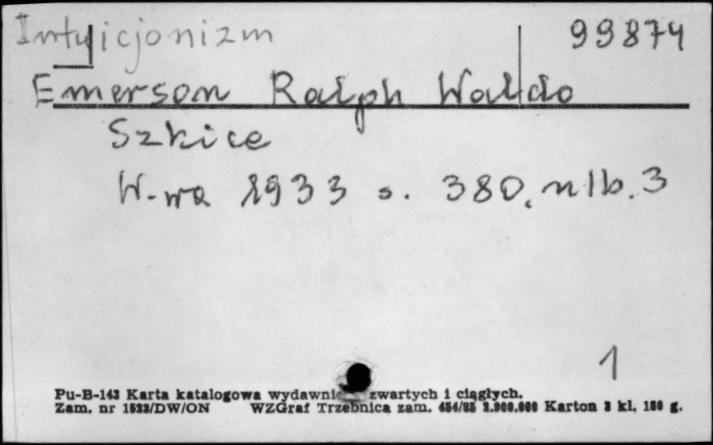 Intuicjonizm 99874
Emerson Ralph Waldo
Szkice
W-wa 1933 s. 380, nlb. 3
1
Pu-B-143 Karta katalogowa wydawnictw zwartych i ciągłych.
Zam. nr 1523/DW/ON WZGraf Trzebnica zam. 454/85 2.900.000 Karton 3 kl. 180 g.